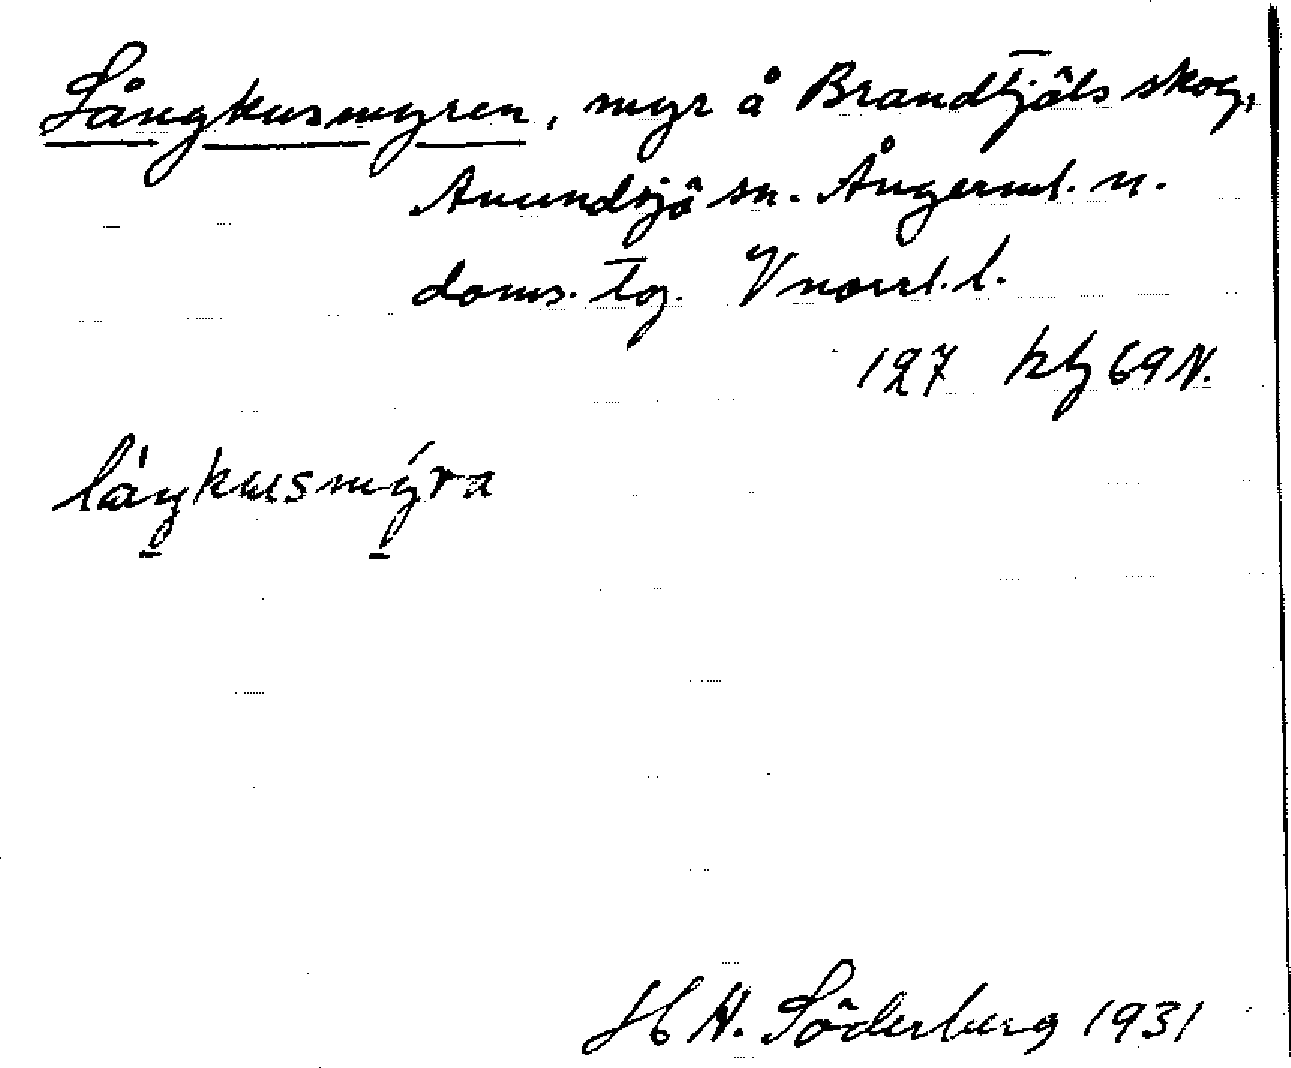 Långkusmyren, myr å Brandtjäls skog,
Anundsjö sn. Ångerml. n.
doms. tg. Vnorrl. l.
127 kbl 69 N.
låŋkusmýra
H H. Söderberg 1931